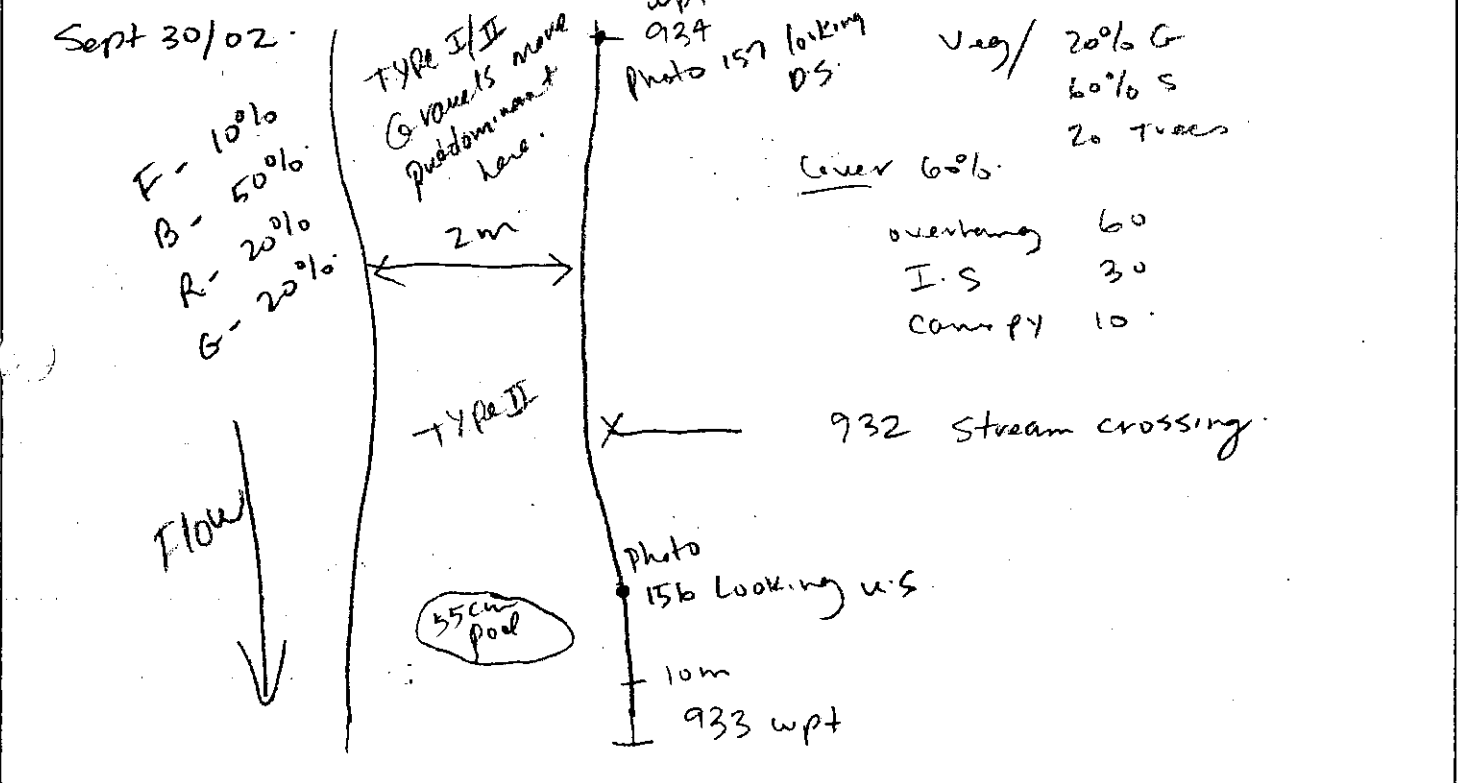 Sept 30/02.
F - 10%
B - 50%
R - 20%
G - 20%
Flow
TYPE I/II
Gravels more
predominant
here.
2m
TYPE II
55cm
pool
wpt
934
Photo 157 looking
D.S.
Veg/ 20% G
60% S
20 Trees
Cover 60%.
overhang 60
I.S 30
Canopy 10.
932 Stream crossing.
Photo
156 Looking u.s.
10m
933 wpt